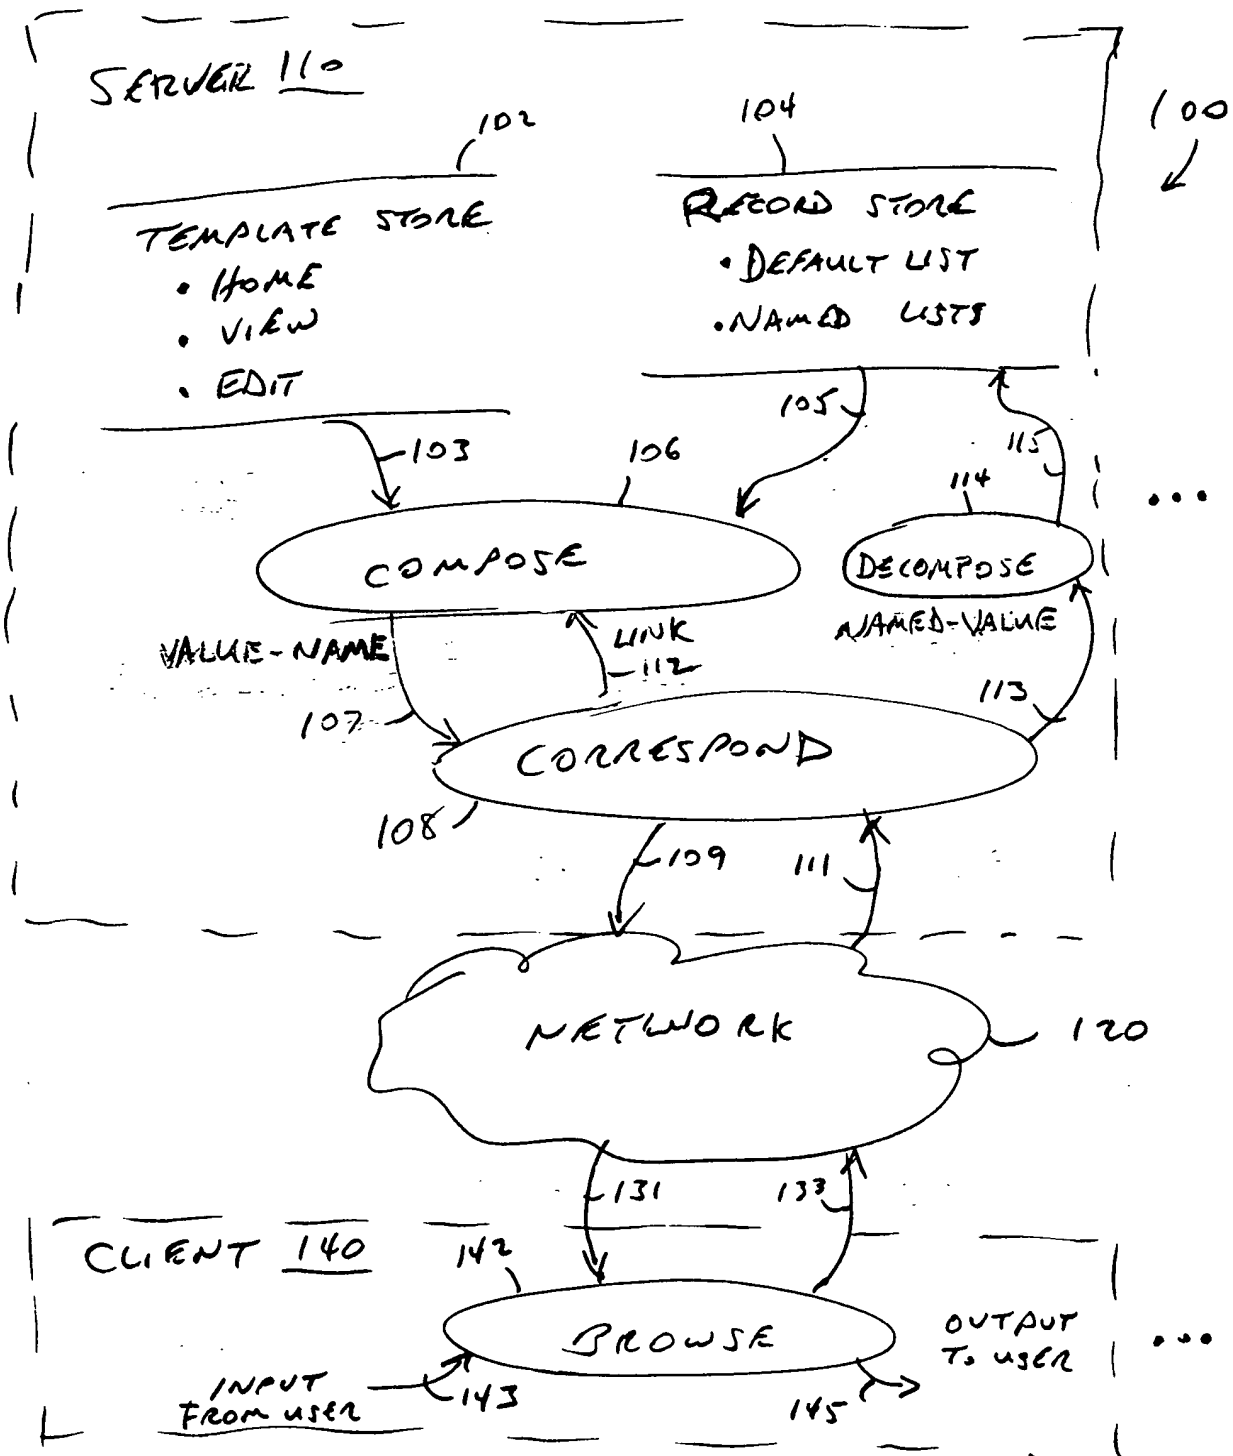 SERVER 110
100
102
104
TEMPLATE STORE
• HOME
• VIEW
• EDIT
RECORD STORE
• DEFAULT LIST
• NAMED LISTS
103
106
105
115
114
...
COMPOSE
DECOMPOSE
VALUE-NAME
LINK
112
NAMED-VALUE
107
113
CORRESPOND
108
109
111
NETWORK
120
131
133
CLIENT 140
142
BROWSE
OUTPUT
TO USER
...
INPUT
FROM USER
143
145